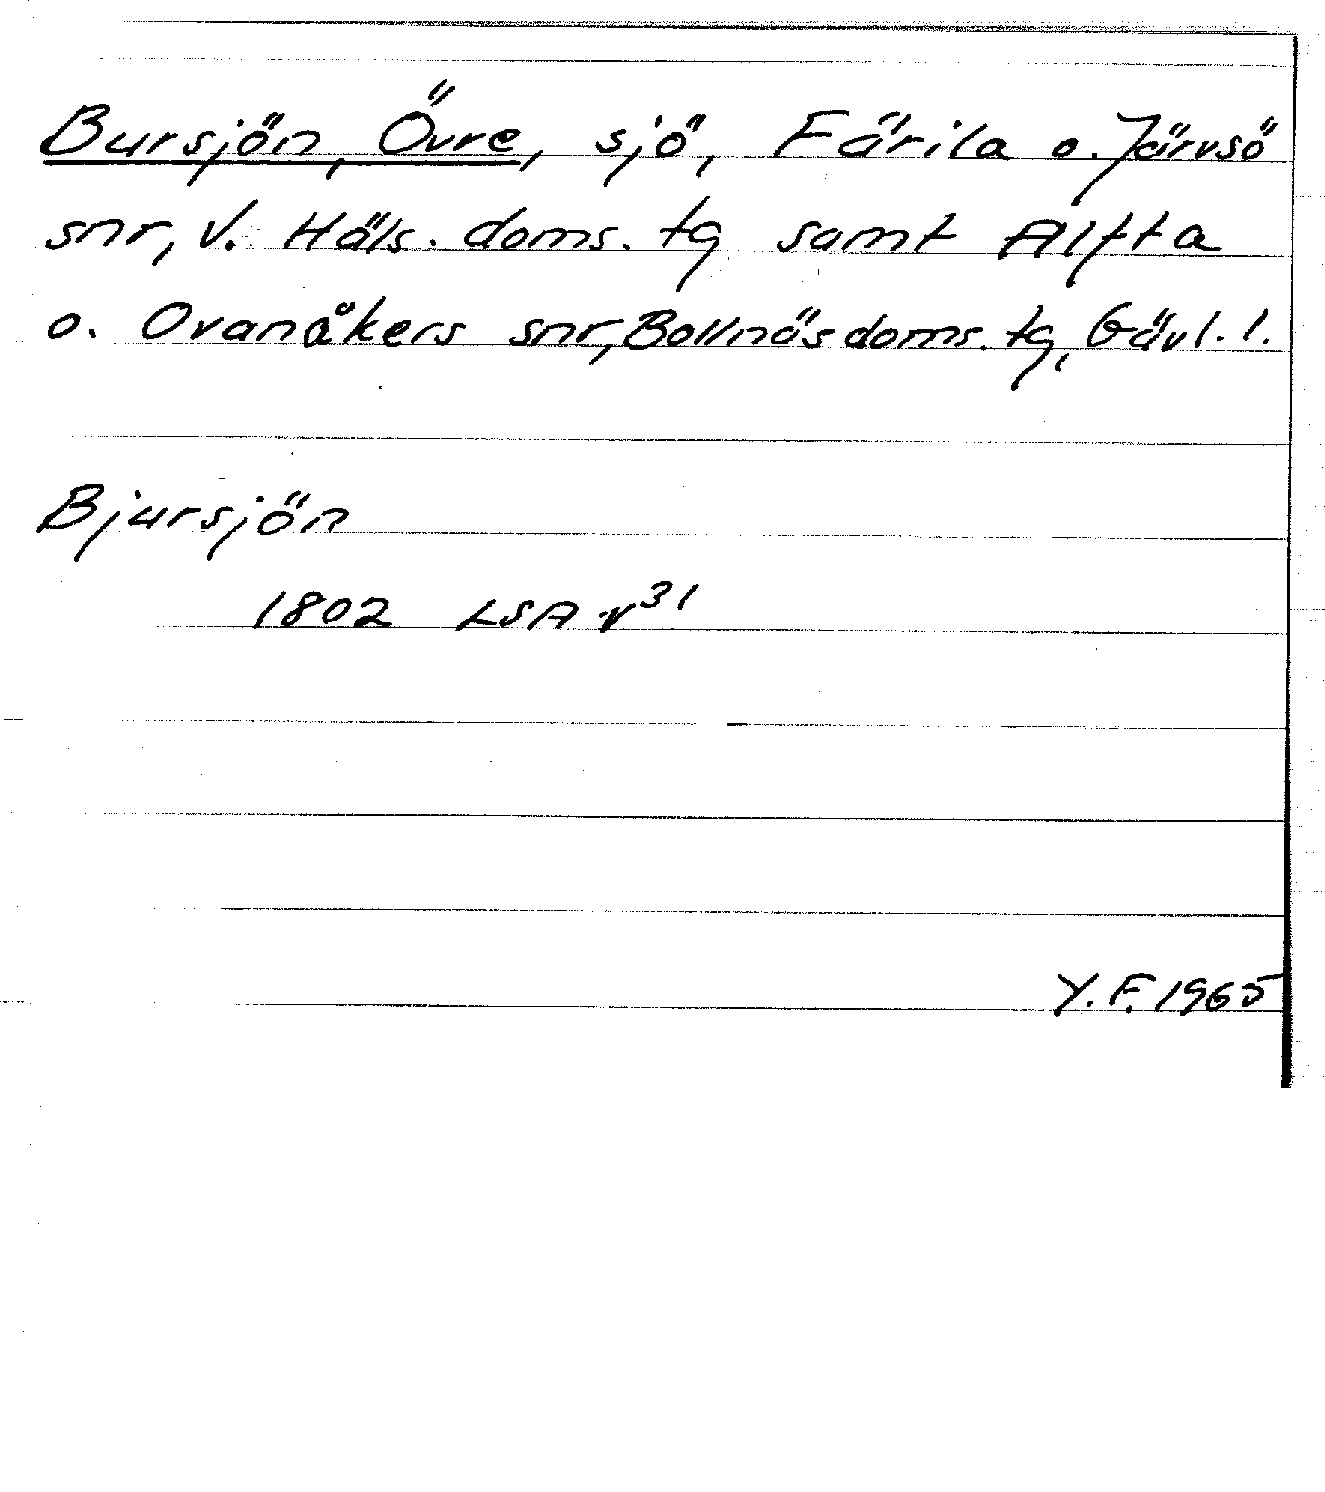 Bursjön, Övre, sjö, Färila o. Järvsö
snr, V. Häls. doms. tg samt Alfta
o. Ovanåkers snr, Bollnäs doms. tg, Gävl. l.
Bjursjön
1802 LSA v³¹
Y. F. 1965